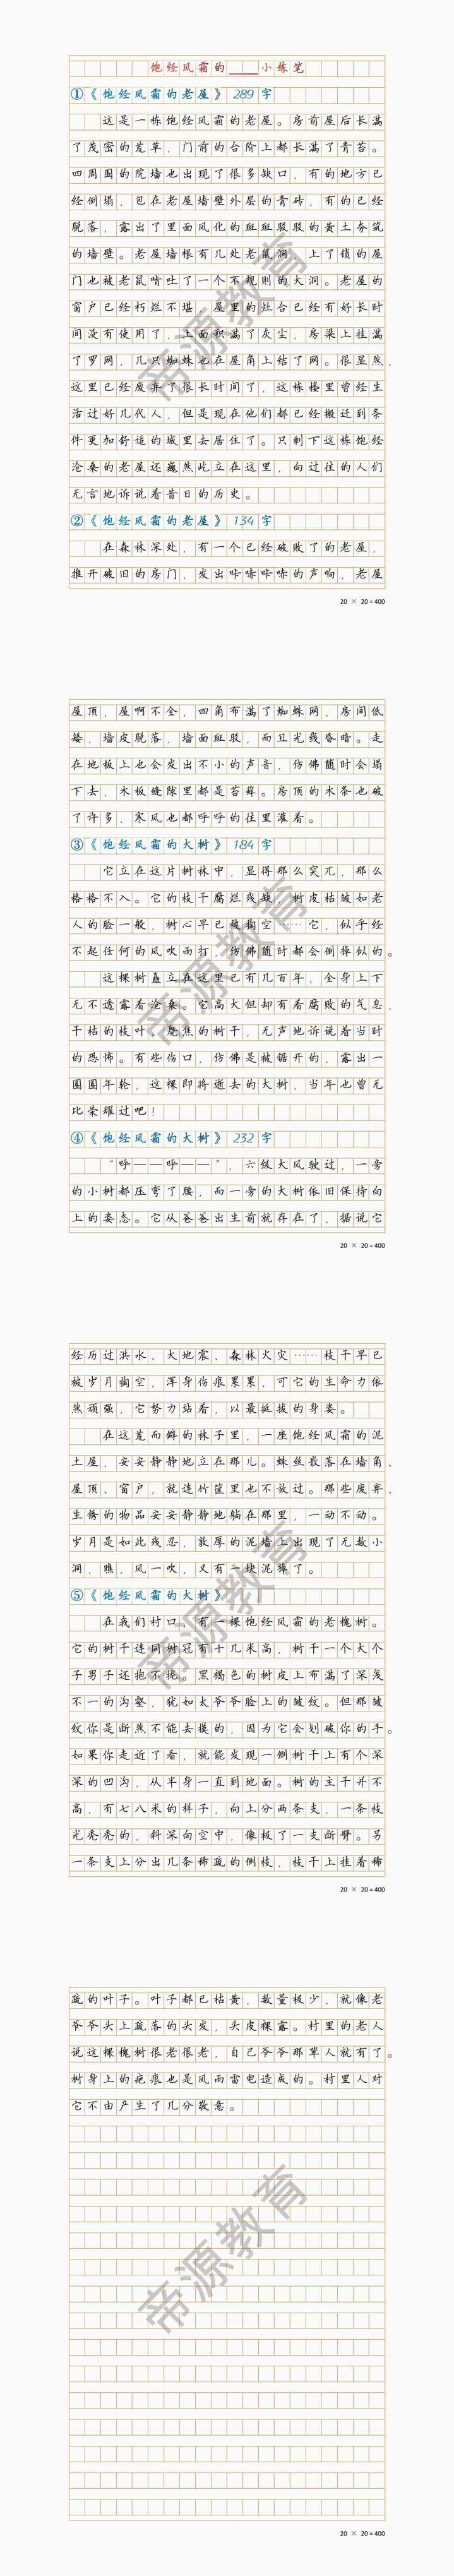 饱经风霜的____小练笔
①《饱经风霜的老屋》289字
这是一栋饱经风霜的老屋。房前屋后长满
了茂密的荒草，门前的台阶上都长满了青苔。
四周围的院墙也出现了很多缺口，有的地方已
经倒塌，包在老屋墙壁外层的青砖，有的已经
脱落，露出了里面风化的斑斑驳驳的黄土夯筑
的墙壁。老屋墙根有几处老鼠洞，上了锁的屋
门也被老鼠啃吐了一个不规则的大洞。老屋的
窗户已经朽烂不堪，屋里的灶台已经有好长时
间没有使用了，上面积满了灰尘，房梁上挂满
了罗网，几只蜘蛛也在屋角上结了网。很显然，
这里已经废弃了很长时间了，这栋楼里曾经生
活过好几代人，但是现在他们都已经搬迁到条
件更加舒适的城里去居住了。只剩下这栋饱经
沧桑的老屋还巍然屹立在这里，向过往的人们
无言地诉说着昔日的历史。
②《饱经风霜的老屋》134字
在森林深处，有一个已经破败了的老屋，
推开破旧的房门，发出咔嗦咔嗦的声响，老屋
20 × 20 = 400
屋顶，屋啊不全，四角布满了蜘蛛网，房间低
矮，墙皮脱落，墙面斑驳，而且光线昏暗。走
在地板上也会发出不小的声音，仿佛随时会塌
下去，木板缝隙里都是苔藓。房顶的木条也破
了许多，寒风也都呼呼的往里灌着。
③《饱经风霜的大树》184字
它立在这片树林中，显得那么突兀，那么
格格不入。它的枝干腐烂残缺，树皮枯皱如老
人的脸一般，树心早已被掏空……它，似乎经
不起任何的风吹雨打，仿佛随时都会倒掉似的。
这棵树矗立在这里已有几百年，全身上下
无不透露着沧桑。它高大但却有着腐败的气息，
干枯的枝叶。烧焦的树干，无声地诉说着当时
的恐怖。有些伤口，仿佛是被锯开的，露出一
圈圈年轮，这棵即将逝去的大树，当年也曾无
比荣耀过吧！
④《饱经风霜的大树》232字
“呼——呼——”，六级大风驶过，一旁
的小树都压弯了腰，而一旁的大树依旧保持向
上的姿态。它从爸爸出生前就存在了，据说它
20 × 20 = 400
经历过洪水、大地震、森林火灾……枝干早已
被岁月掏空，浑身伤痕累累，可它的生命力依
然顽强，它努力站着，以最挺拔的身姿。
在这荒而僻的林子里，一座饱经风霜的泥
土屋，安安静静地立在那儿。蛛丝散落在墙角、
屋顶、窗户，就连竹筐里也不放过。那些废弃、
生锈的物品安安静静地躺在那里，一动不动。
岁月是如此残忍，敦厚的泥墙上出现了无数小
洞，瞧，风一吹，又有一块泥掉了。
⑤《饱经风霜的大树》
在我们村口，有一棵饱经风霜的老槐树。
它的树干连同树冠有十几米高，树干一个大个
子男子还抱不拢。黑褐色的树皮上布满了深浅
不一的沟壑，犹如太爷爷脸上的皱纹。但那皱
纹你是断然不能去摸的，因为它会划破你的手。
如果你走近了看，就能发现一侧树干上有个深
深的凹沟，从半身一直到地面。树的主干并不
高，有七八米的样子，向上分两条支，一条枝
光秃秃的，斜深向空中，像极了一支断臂。另
一条支上分出几条稀疏的侧枝，枝干上挂着稀
20 × 20 = 400
疏的叶子。叶子都已枯黄，数量极少，就像老
爷爷头上疏落的头发，头皮裸露。村里的老人
说这棵槐树很老很老，自己爷爷那辈人就有了。
树身上的疤痕也是风雨雷电造成的。村里人对
它不由产生了几分敬意。
20 × 20 = 400
帝源教育
帝源教育
帝源教育
帝源教育